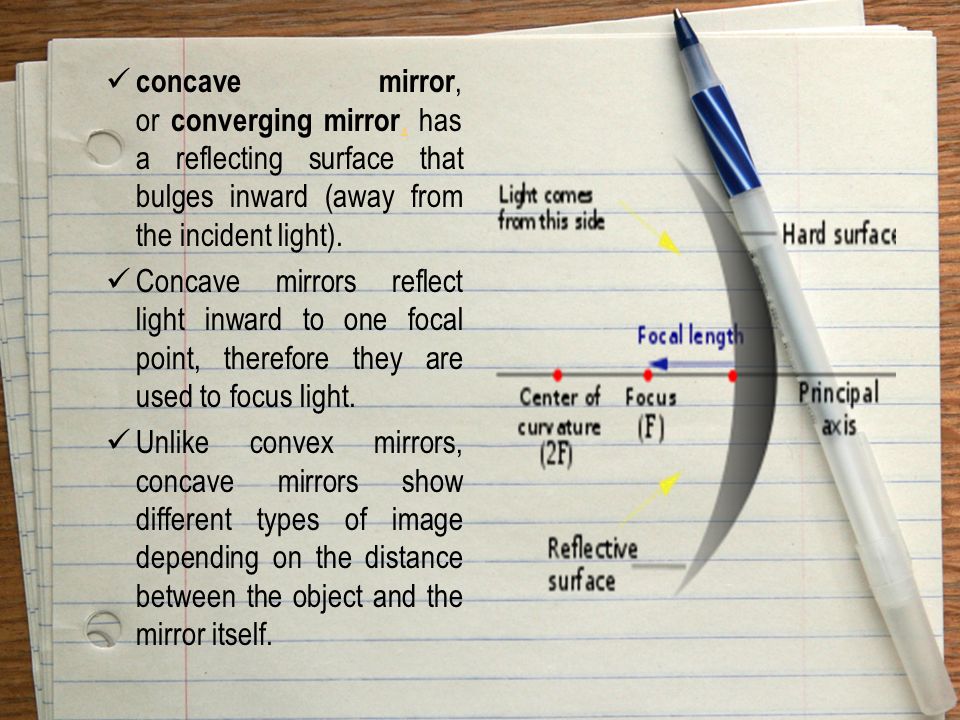 ✓ concave mirror,
or converging mirror, has
a reflecting surface that
bulges inward (away from
the incident light).
✓ Concave mirrors reflect
light inward to one focal
point, therefore they are
used to focus light.
✓ Unlike convex mirrors,
concave mirrors show
different types of image
depending on the distance
between the object and the
mirror itself.
Light comes
from this side
Hard surface
Focal length
Center of
curvature
(2F)
Focus
(F)
Principal
axis
Reflective
surface